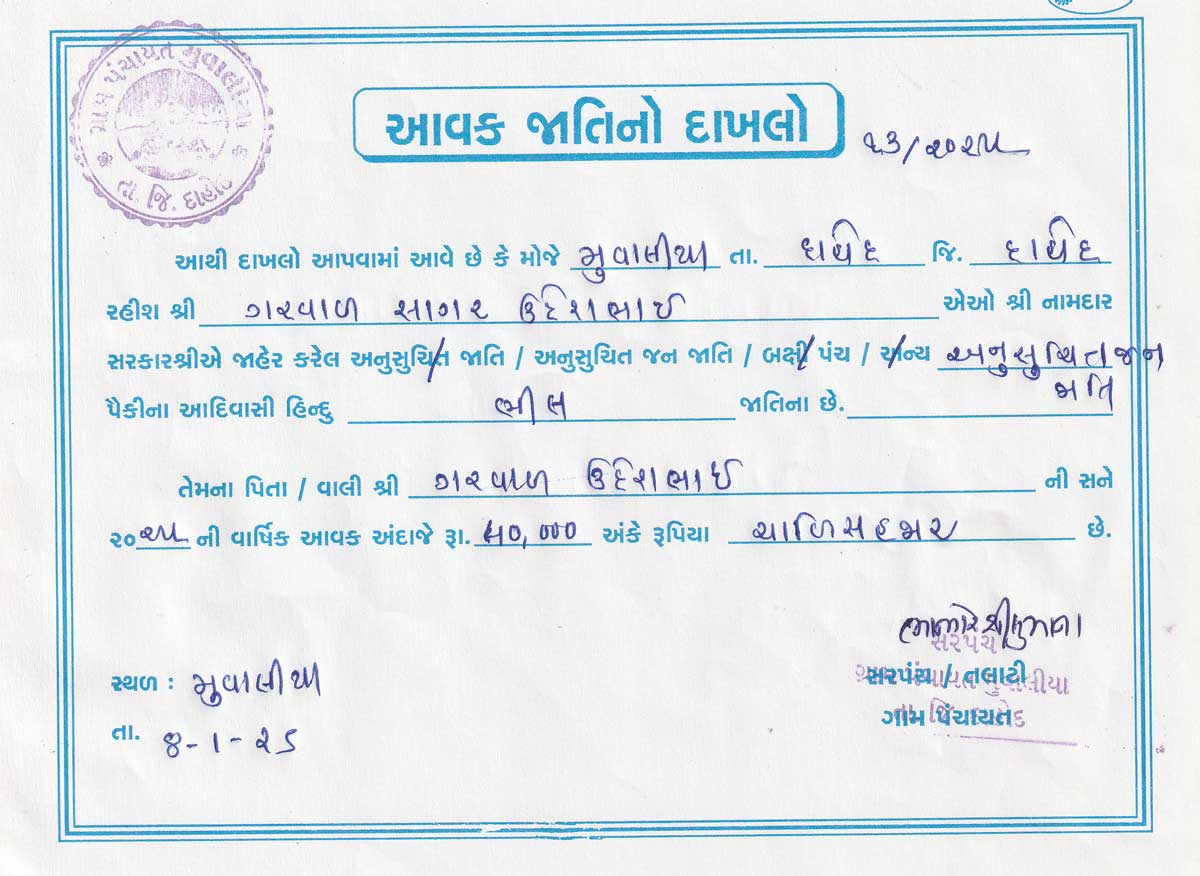 ગ્રામ પંચાયત મુવાલીયા
તા. જિ. દાહોદ
આવક જાતિનો દાખલો
૨૩/૨૦૨૫
આથી દાખલો આપવામાં આવે છે કે મોજે મુવાલીયા તા. દાહોદ જિ. દાહોદ
રહીશ શ્રી ગરવાળ સાગર ઉદેશભાઈ એઓ શ્રી નામદાર
સરકારશ્રીએ જાહેર કરેલ અનુસુચિત જાતિ / અનુસુચિત જન જાતિ / બક્ષી પંચ / અન્ય અનુસુચિત જન
જાતિ
પૈકીના આદિવાસી હિન્દુ ભીલ જાતિના છે.
તેમના પિતા / વાલી શ્રી ગરવાળ ઉદેશભાઈ ની સને
૨૦૨૫ ની વાર્ષિક આવક અંદાજે રૂા. ૪૦,૦૦૦ અંકે રૂપિયા ચાળિસહજાર છે.
સરપંચ
ગ્રામ પંચાયત મુવાલીયા
તા. જિ. દાહોદ
સરપંચ / તલાટી
ગામ પંચાયત
સ્થળ : મુવાલીયા
તા. ૪-૧-૨૬